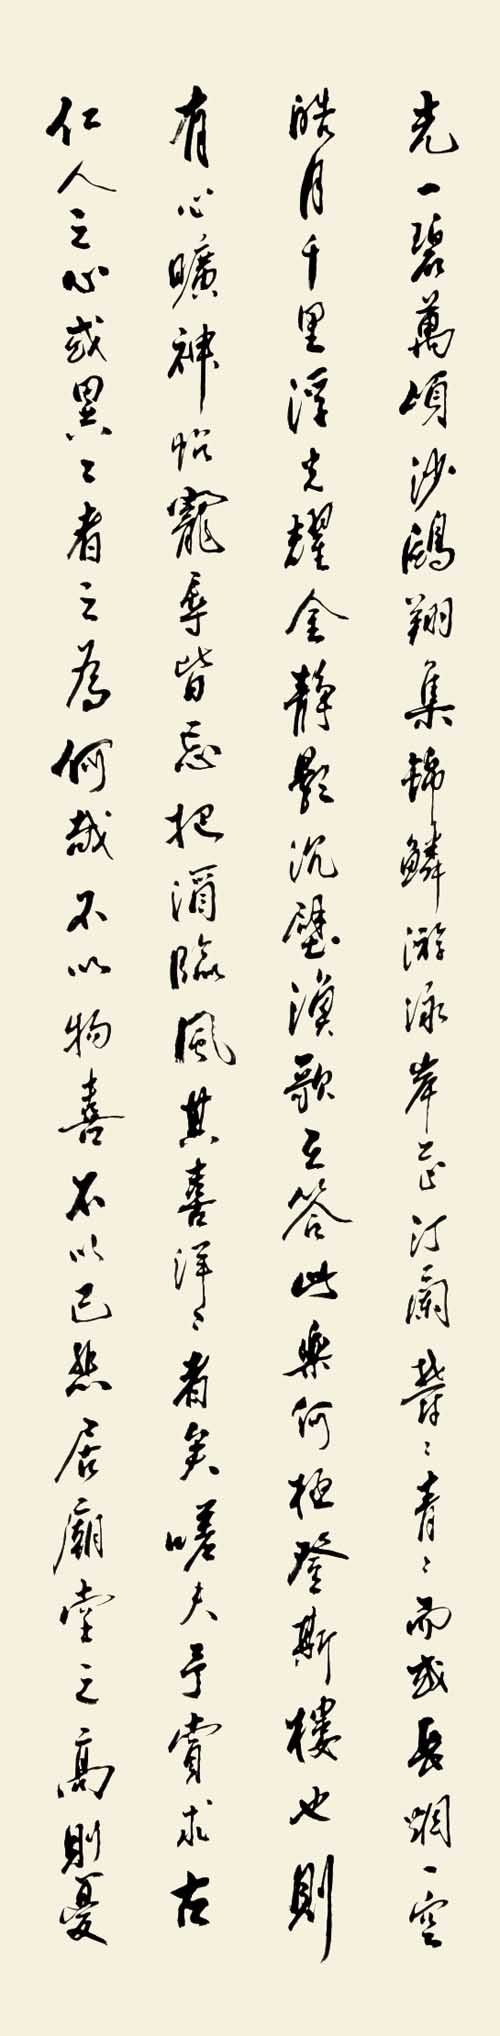 光一碧萬頃沙鷗翔集錦鱗游泳岸芷汀蘭鬱〻青〻而或長烟一空
皓月千里浮光耀金静影沉璧漁歌互答此樂何極登斯樓也則
有心曠神怡寵辱皆忘把酒臨風其喜洋〻者矣嗟夫予嘗求古
仁人之心或異二者之為何哉不以物喜不以己悲居廟堂之高則憂